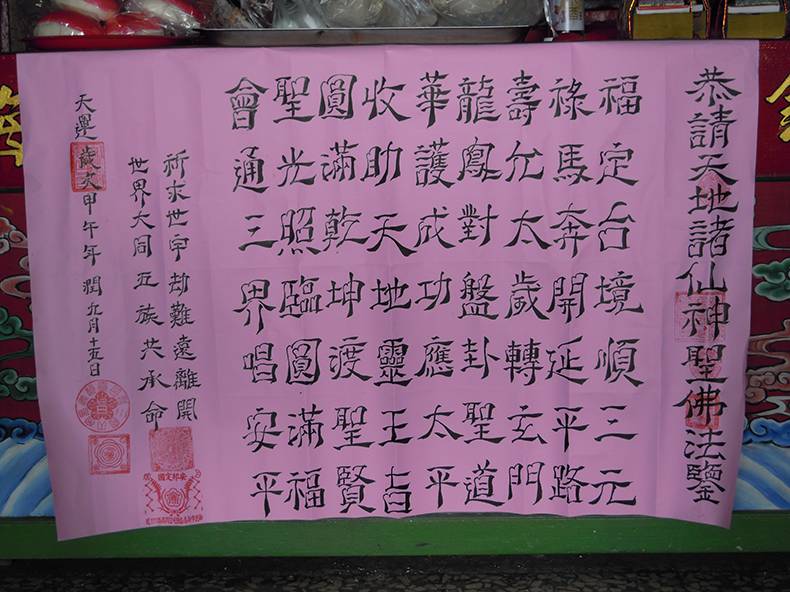 恭請天地諸仙神聖佛法鑒
福定台境順三元
祿馬奔開延平路
壽允太歲轉玄門
龍鳳對盤卦聖道
華護成功應太平
收助天地靈王吉
圓滿乾坤渡聖賢
聖光照臨圓滿福
會通三界唱安平
祈求世宇劫難遠離開
世界大同五族共承命
天運歲次甲午年潤九月十五日